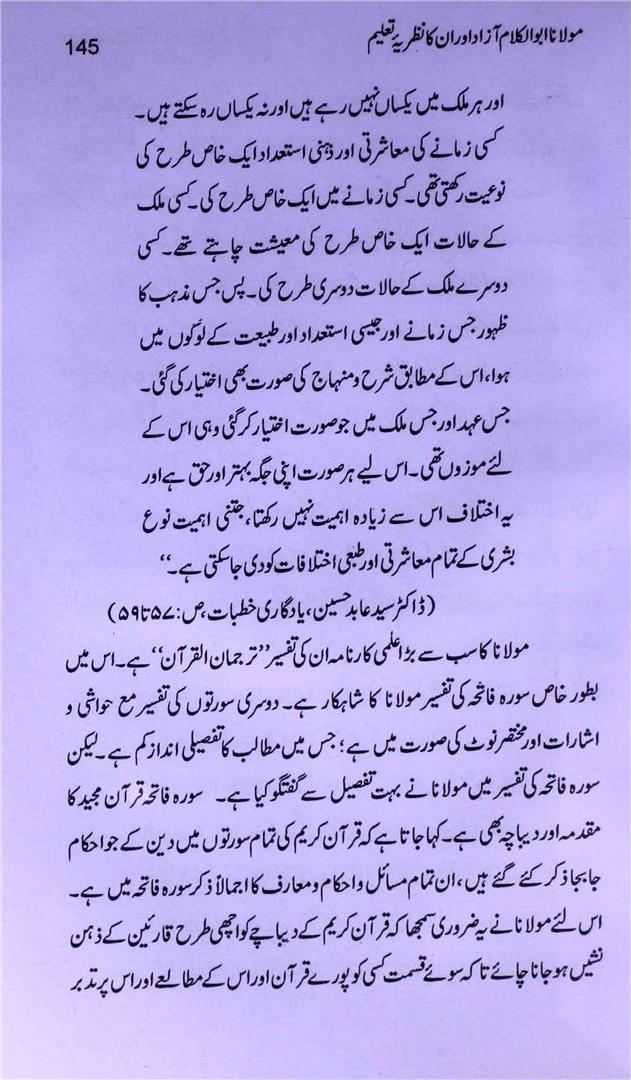 مولانا ابوالکلام آزاد اور ان کا نظریۂ تعلیم 145
اور ہر ملک میں یکساں نہیں رہے ہیں اور نہ یکساں رہ سکتے ہیں۔
کسی زمانے کی معاشرتی اور ذہنی استعداد ایک خاص طرح کی
نوعیت رکھتی تھی۔ کسی زمانے میں ایک خاص طرح کی۔ کسی ملک
کے حالات ایک خاص طرح کی معیشت چاہتے تھے۔ کسی
دوسرے ملک کے حالات دوسری طرح کی۔ پس جس مذہب کا
ظہور جس زمانے اور جیسی استعداد اور طبیعت کے لوگوں میں
ہوا، اس کے مطابق شرح و منہاج کی صورت بھی اختیار کی گئی۔
جس عہد اور جس ملک میں جو صورت اختیار کر گئی وہی اس کے
لئے موزوں تھی۔ اس لیے ہر صورت اپنی جگہ بہتر اور حق ہے اور
یہ اختلاف اس سے زیادہ اہمیت نہیں رکھتا، جتنی اہمیت نوع
بشری کے تمام معاشرتی اور طبعی اختلافات کو دی جاسکتی ہے۔‘‘
(ڈاکٹر سید عابد حسین، یادگاری خطبات، ص: ۵۷ تا ۵۹)
مولانا کا سب سے بڑا علمی کارنامہ ان کی تفسیر ’’ترجمان القرآن‘‘ ہے۔ اس میں
بطور خاص سورہ فاتحہ کی تفسیر مولانا کا شاہکار ہے۔ دوسری سورتوں کی تفسیر مع حواشی و
اشارات اور مختصر نوٹ کی صورت میں ہے؛ جس میں مطالب کا تفصیلی انداز کم ہے۔ لیکن
سورہ فاتحہ کی تفسیر میں مولانا نے بہت تفصیل سے گفتگو کیا ہے۔ سورہ فاتحہ قرآن مجید کا
مقدمہ اور دیباچہ بھی ہے۔ کہا جاتا ہے کہ قرآن کریم کی تمام سورتوں میں دین کے جو احکام
جابجا ذکر کئے گئے ہیں، ان تمام مسائل و احکام و معارف کا اجمالاً ذکر سورہ فاتحہ میں ہے۔
اس لئے مولانا نے یہ ضروری سمجھا کہ قرآن کریم کے دیباچے کو اچھی طرح قارئین کے ذہن
نشیں ہو جانا چائے تاکہ سوئے قسمت کسی کو پورے قرآن اور اس کے مطالعے اور اس پر تدبر